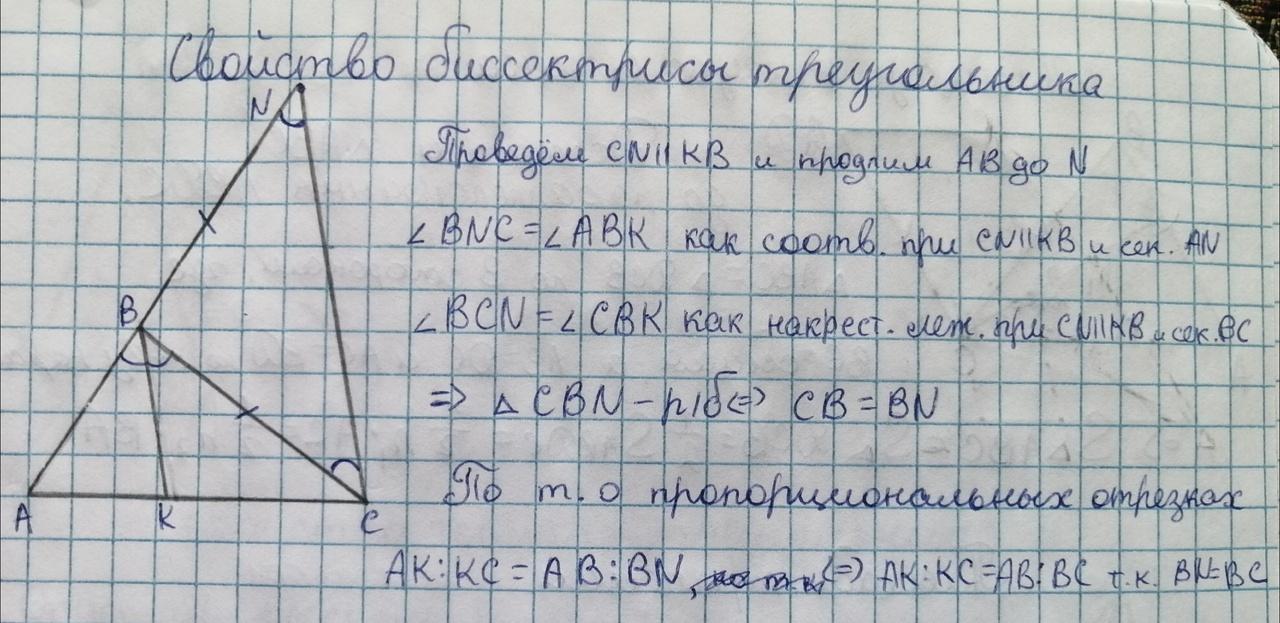 Свойство биссектрисы треугольника
N
Проведём CN||KB и продлим AB до N
∠BNC=∠ABK как соотв. при CN||KB и сек. AN
B
∠BCN=∠CBK как накрест. леж. при CN||KB и сек. BC
=> △ CBN - р/б <=> CB = BN
По т. о пропорциональных отрезках
A K C
AK:KC = AB:BN, <=> AK:KC=AB:BC т.к. BN=BC